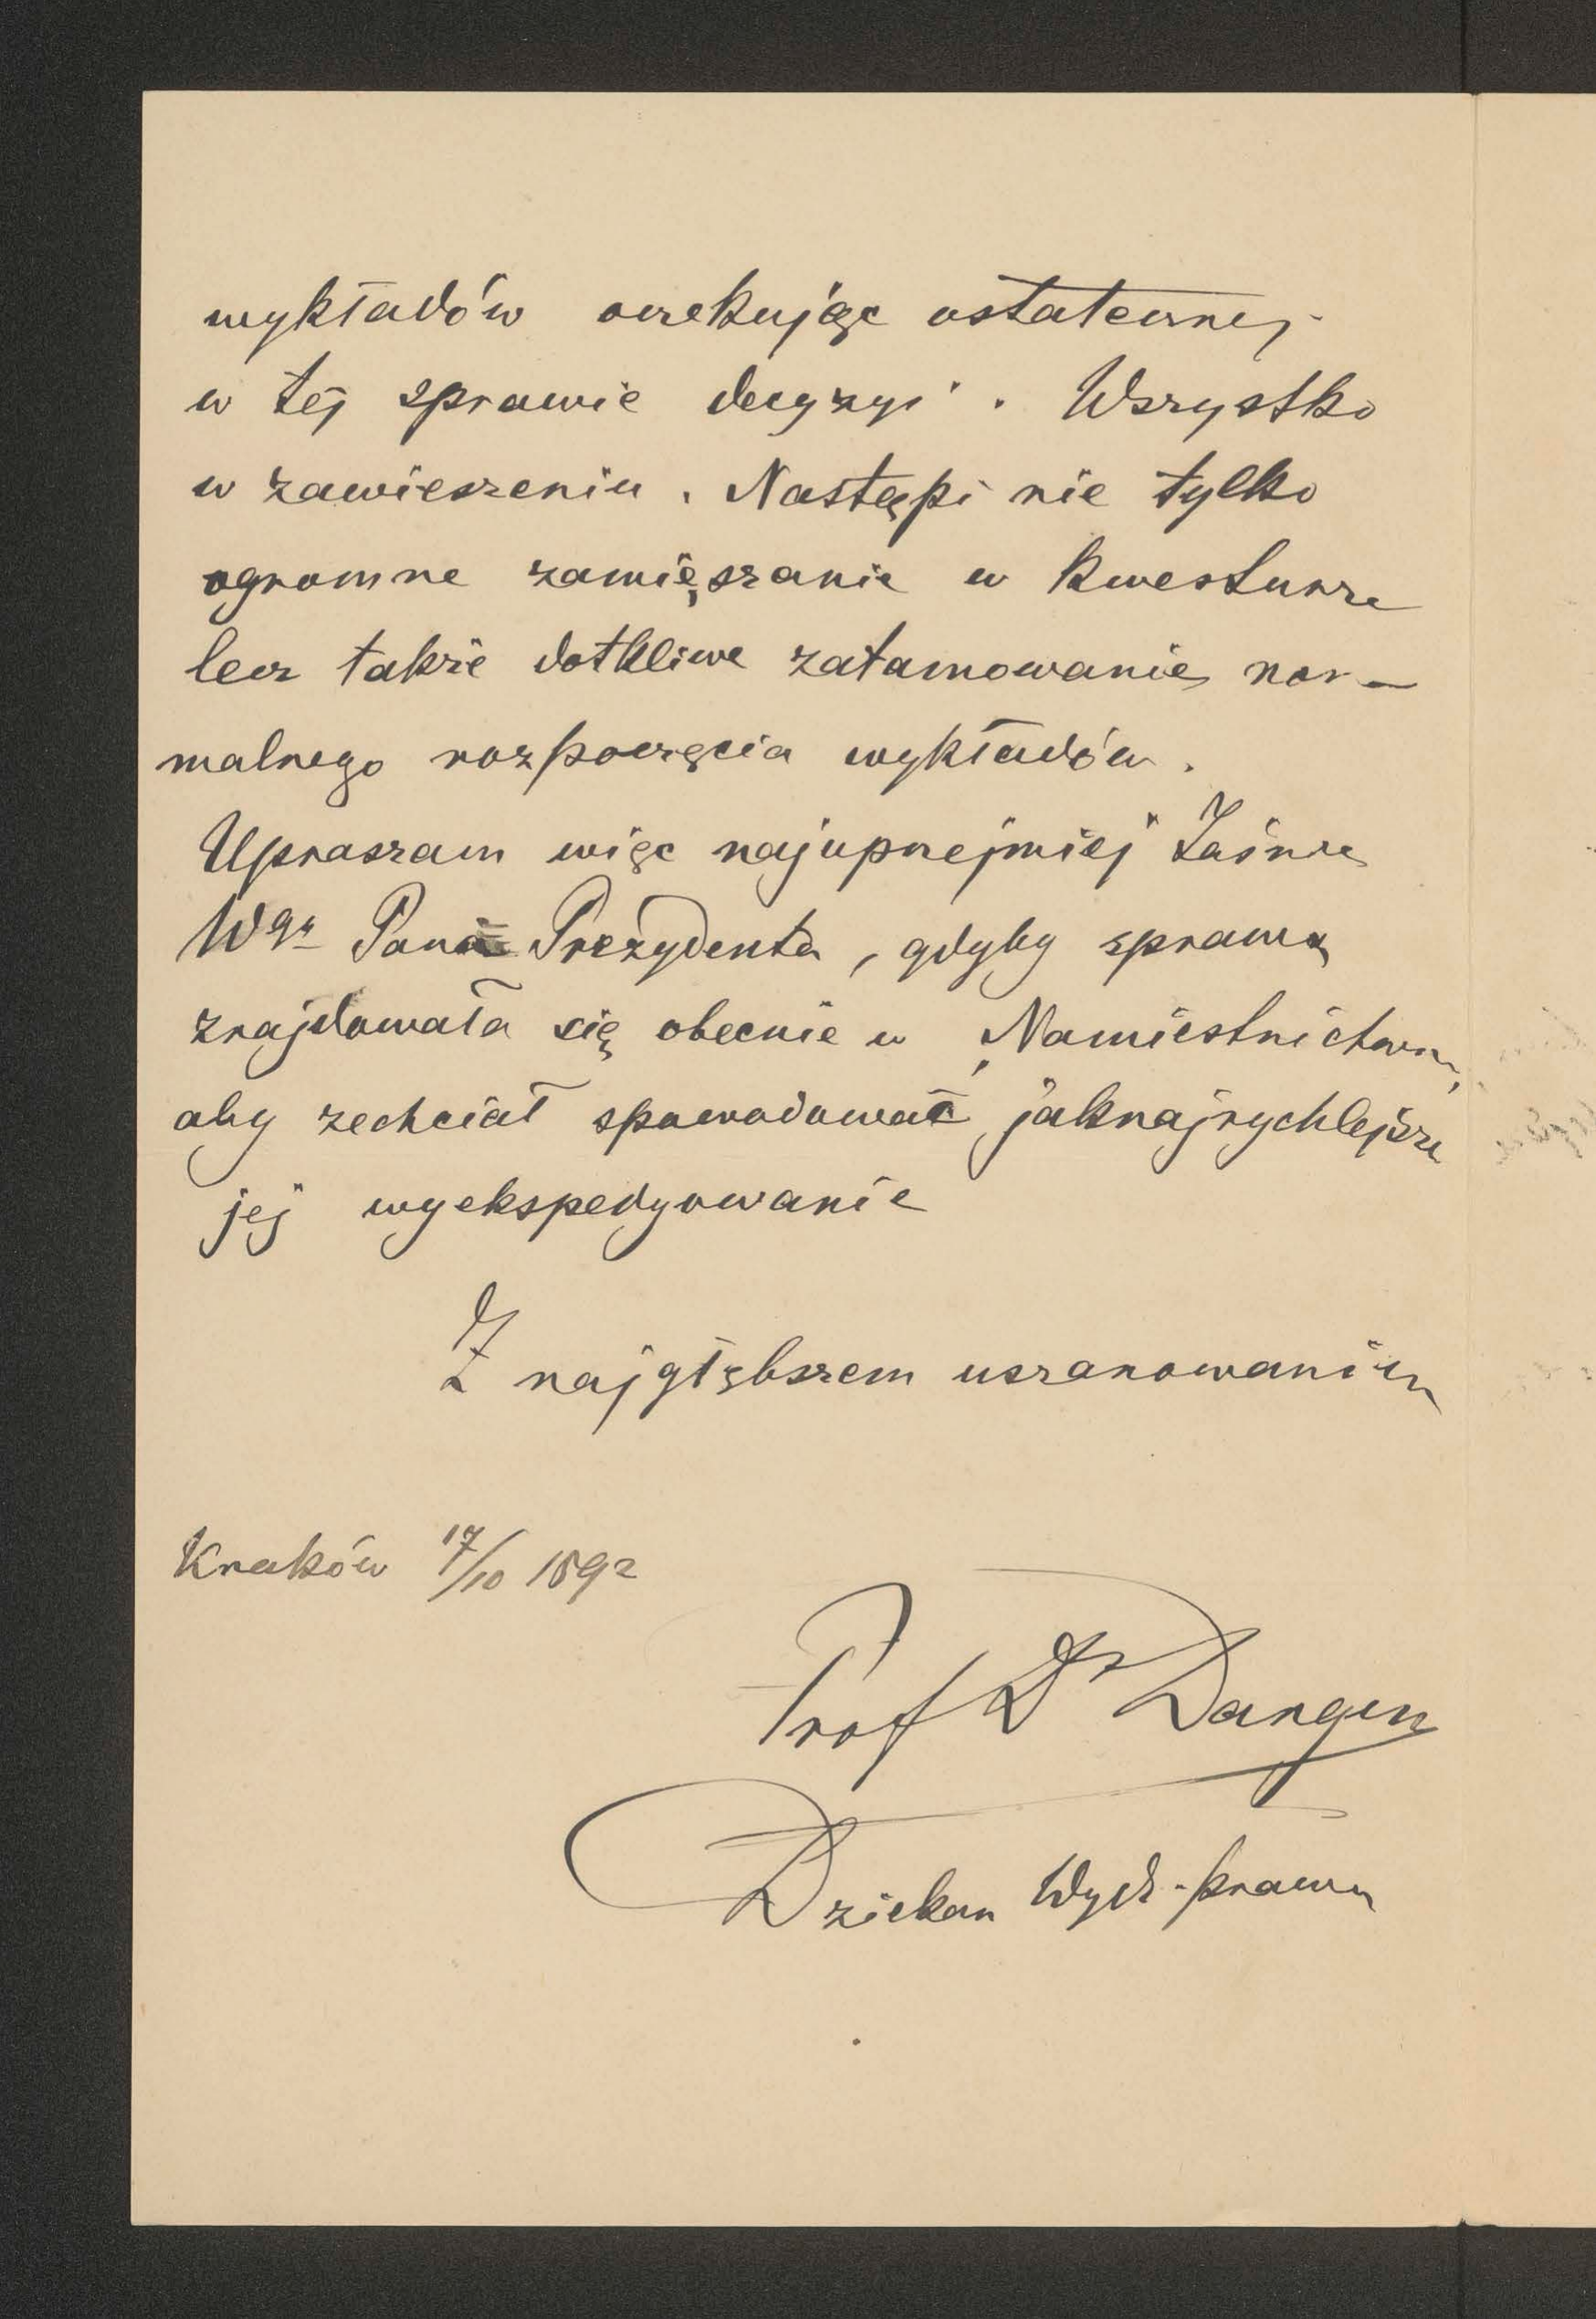 wykładów oczekując ostatecznej
w tej sprawie decyzyi. Wszystko
w zawieszeniu. Nastąpi nie tylko
ogromne zamięszanie w kwesturze
lecz także dotkliwe zatamowanie nor-
malnego rozpoczęcia wykładów.
Upraszam więc najuprzejmiej Jaśnie
Wgo Pana Prezydenta, gdyby sprawa
znajdowała się obecnie w Namiestnictwie,
aby zechciał spowodować jaknajrychlejsze
jej wyekspedyowanie
Z najgłębszem uszanowaniem
Kraków 17/10 1892
Prof Dr Dargun
Dziekan Wydz. prawa